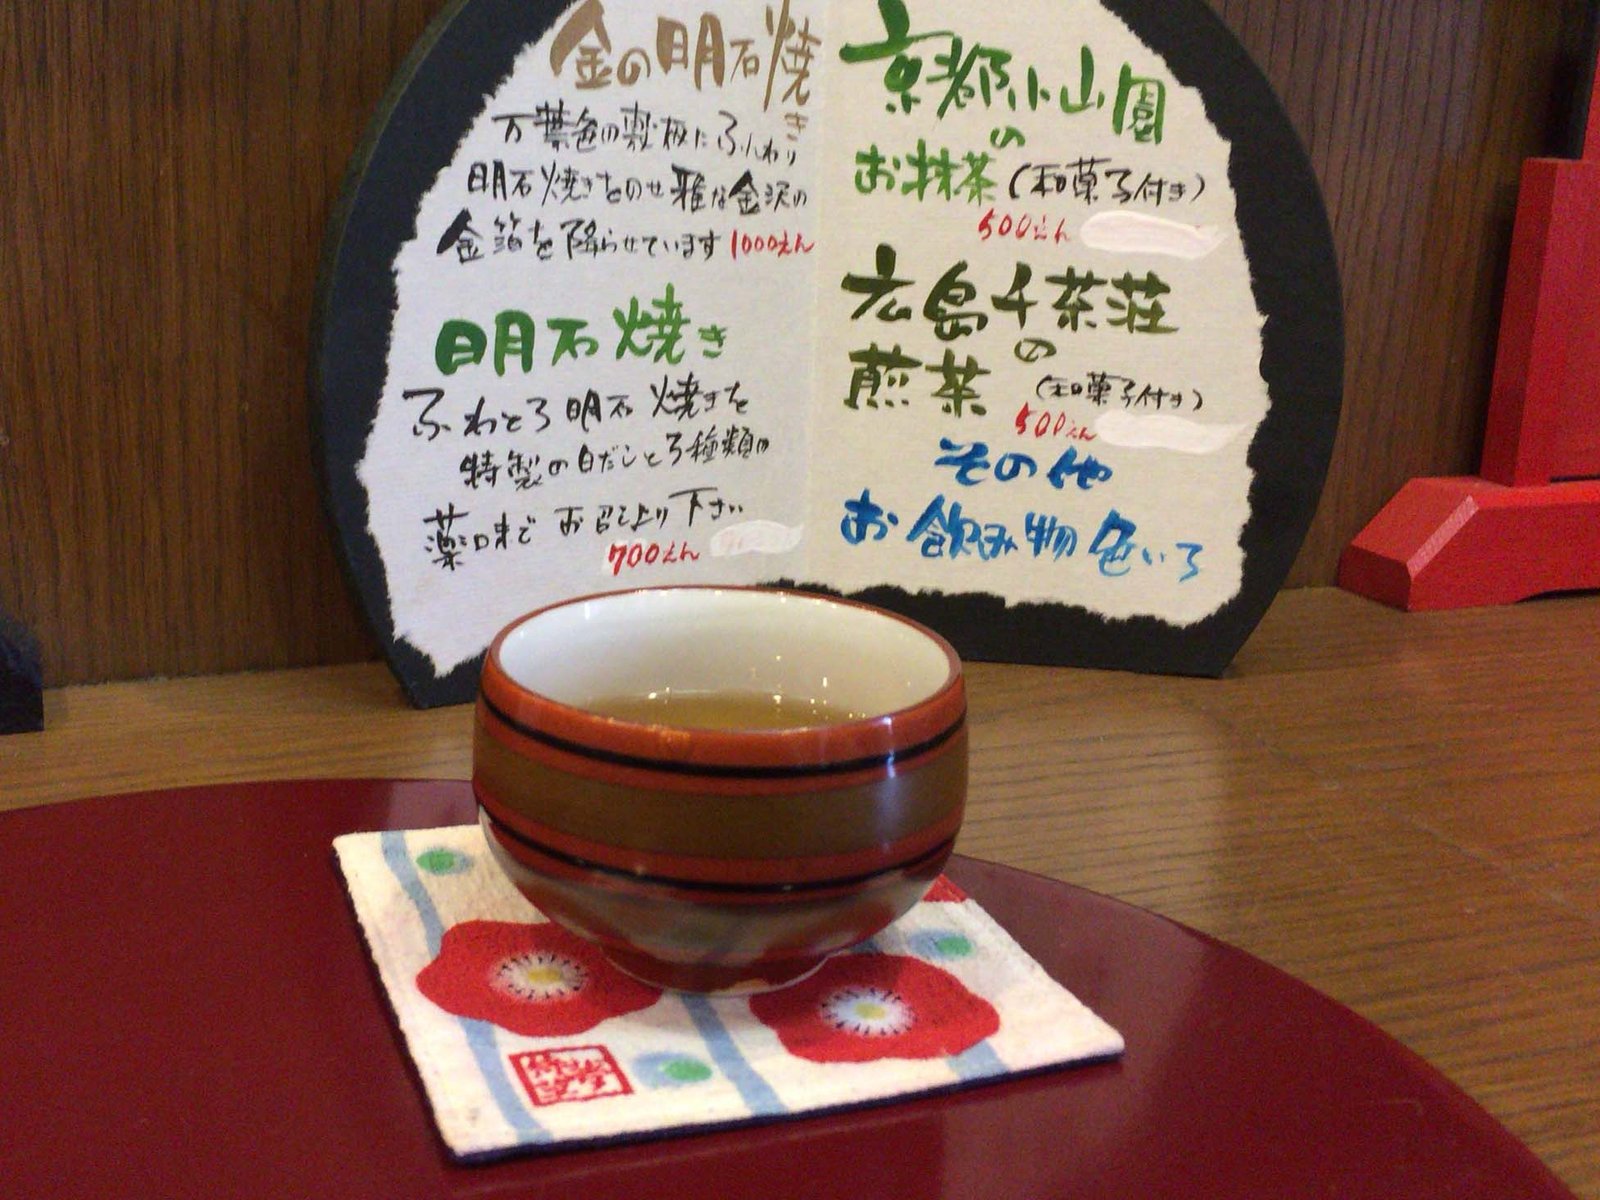 金の明石焼き
万葉色の敷板にふんわり
明石焼きをのせ雅な金沢の
金箔を降らせています 1000えん
明石焼き
ふわとろ明石焼きを
特製の白だしと3種類の
薬味でお召し上り下さい
700えん
京都小山園
の
お抹茶(和菓子付き)
500えん
広島千茶荘
の
煎茶(和菓子付き)
500えん
その他
お飲み物色いろ